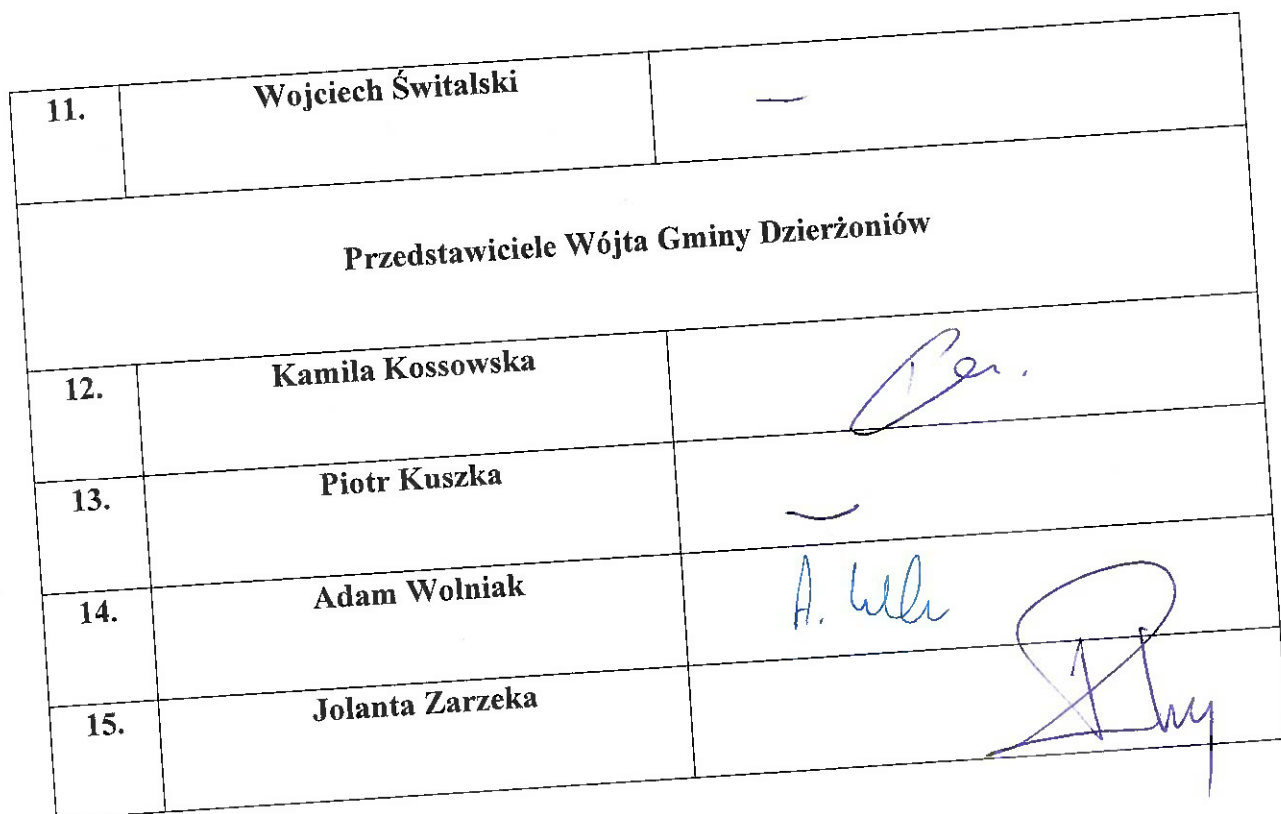 11. Wojciech Świtalski —
Przedstawiciele Wójta Gminy Dzierżoniów
12. Kamila Kossowska
13. Piotr Kuszka —
14. Adam Wolniak
15. Jolanta Zarzeka